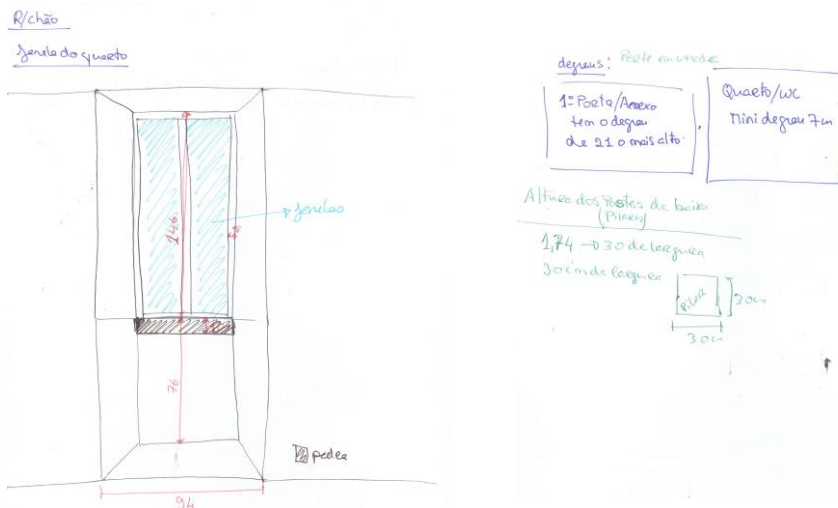 R/chão
Janela do quarto
146
Janelas
76
pedra
94
degraus:
1º Porta/Anexo
tem o degrau
de 21 o mais alto.
Quarto/WC
Mini degrau 7cm
Altura dos Postes de baixo
(Pilares)
1,74 → 30 de largura
30cm de largura
Pilar
30cm
30cm